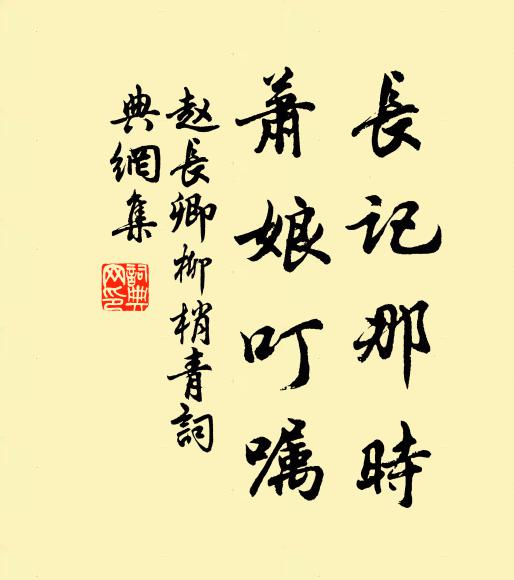 長記那時
蕭娘叮嘱
赵長卿柳梢青詞
典網集
詞典
网印